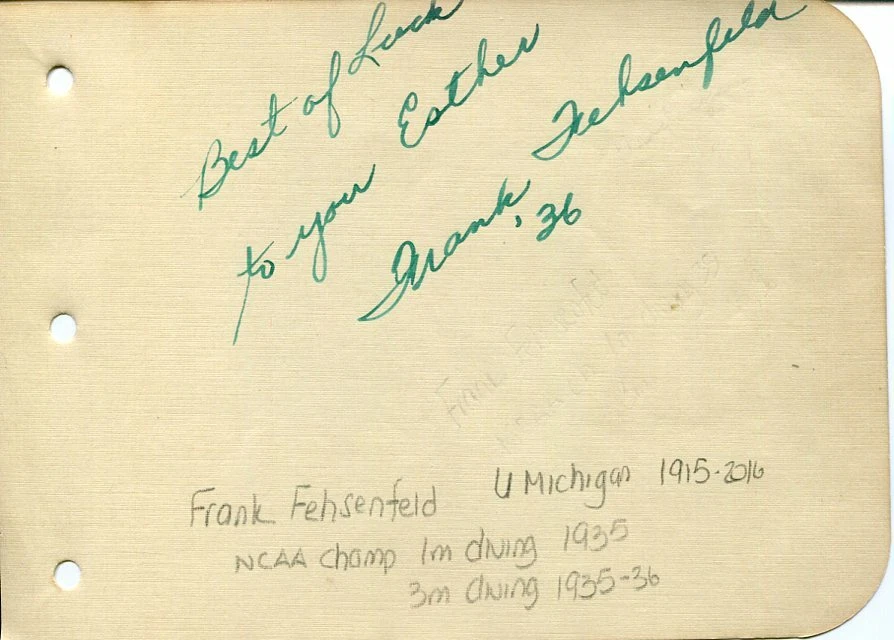 Best of Luck
to you Esther
Frank Fehsenfeld
, 36
Frank Fehsenfeld U Michigan 1915-2016
NCAA Champ 1m diving 1935
3m diving 1935-36